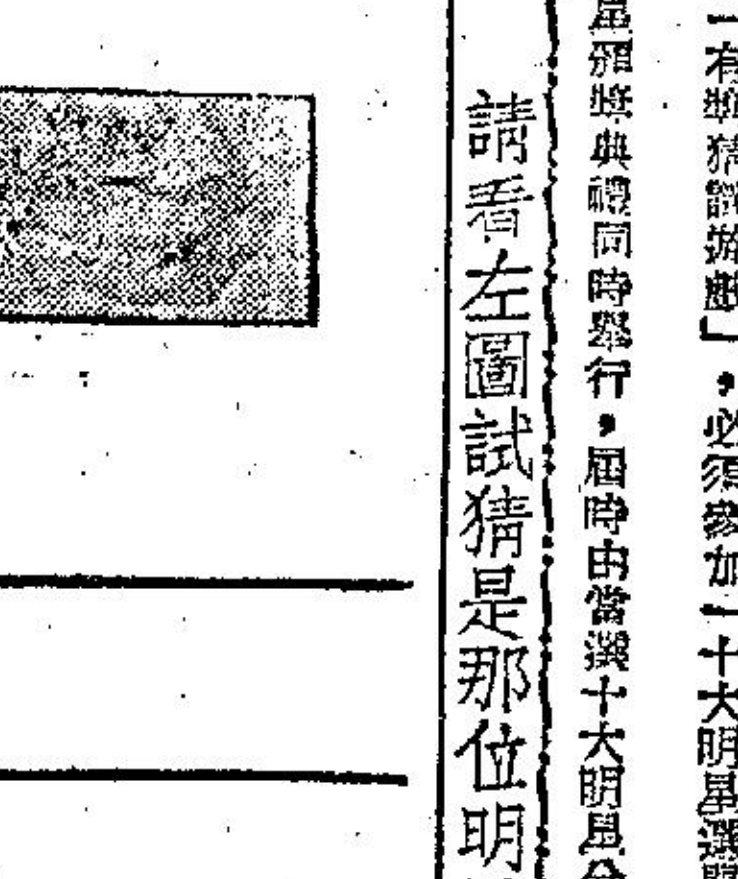 有獎猜謎遊戲」，必須參加「十大明星選
星頒獎典禮同時舉行，屆時由當選十大明星分
請看左圖試猜是那位明